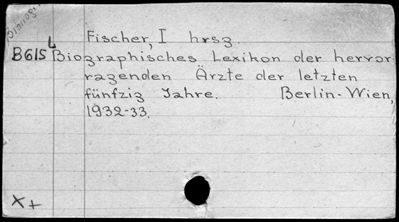 Fischer, I hrsg.
B615 L Biographisches Lexikon der hervor-
ragenden Ärzte der letzten
fünfzig Jahre. Berlin-Wien,
1932-33.